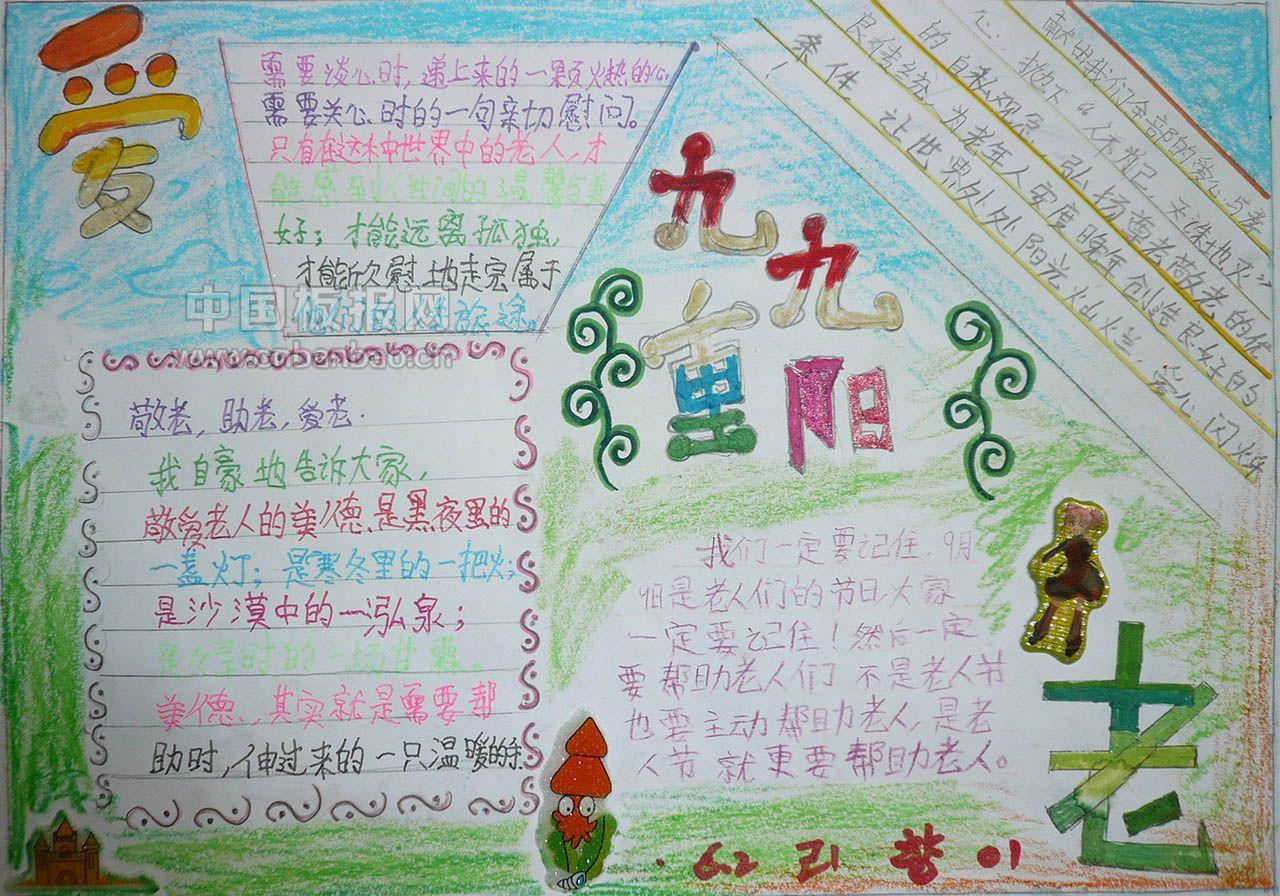 爱
需要谈心时，递上来的一颗火热的心，
需要关心时的一句亲切慰问。
只有在这种世界中的老人，才
能感到人世间的温馨与美
好；才能远离孤独，
才能欣慰地走完属于
旅途。
中国板报网
www.cnbanbao.cn
九九重阳
献出我们全部的爱心与孝
心，抛下“人不为己，天诛地灭”
的自私观念，弘扬尊老敬老的优
良传统，为老年人安度晚年创造良好的
条件，让世界处处阳光灿烂，爱心闪烁
！
敬老，助老，爱老.
我自豪地告诉大家，
敬爱老人的美德、是黑夜里的
一盏灯；是寒冬里的一把火；
是沙漠中的一泓泉；
是久旱时的一场甘霖。
美德，其实就是需要帮
助时，伸过来的一只温暖的手
我们一定要记住 9月
9日是老人们的节日，大家
一定要记住！然后一定
要帮助老人们 不是老人节
也要主动帮助老人，是老
人节 就更要帮助老人。
老
6.2